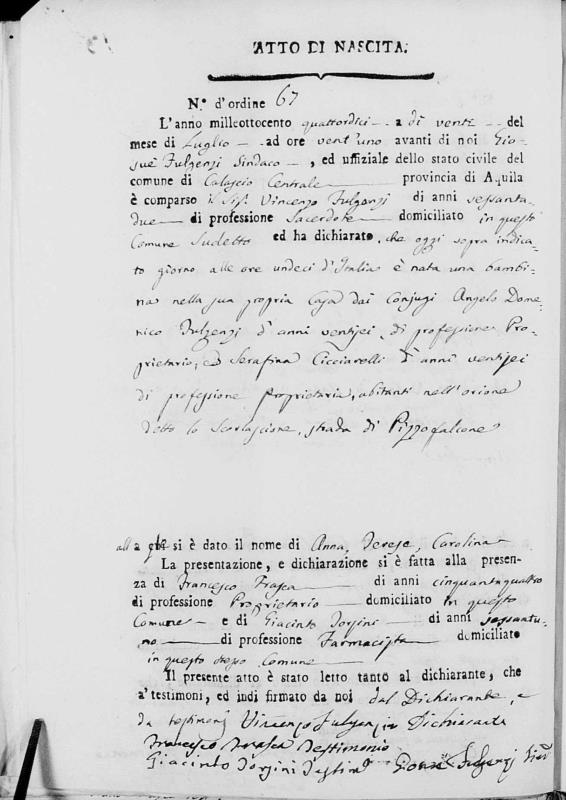 ATTO DI NASCITA.
N.° d'ordine 67
L'anno milleottocento quattordici a dì venti del
mese di Luglio ad ore vent'uno avanti di noi Gio-
suè Fulgenzj Sindaco, ed uffiziale dello stato civile del
comune di Calascio Centrale provincia di Aquila
è comparso il Sig.r Vincenzo Fulgenzj di anni sessanta-
due di professione Sacerdote domiciliato in questo
Comune Sudetto ed ha dichiarato, che oggi sopra indica-
to giorno alle ore undeci d'Italia è nata una bambi-
na nella sua propria Casa dai Conjugi Angelo Dome-
nico Fulgenzj d'anni ventisei, di professione Pro-
prietario, ed Serafina Cicciarelli d'anni ventisei
di professione Proprietaria, abitanti nell'orione
detto lo Scarlascione, strada di Pizzofalcone
alla si è dato il nome di Anna, Terese, Carolina
La presentazione, e dichiarazione si è fatta alla presen-
za di Francesco Frasca di anni cinquantaquattro
di professione Proprietario domiciliato in questo
Comune e di Giacinto Jorgini di anni sessantu-
no di professione Farmacista domiciliato
in questo stesso Comune
Il presente atto è stato letto tanto al dichiarante, che
a' testimoni, ed indi firmato da noi dal Dichiarante, e
da testimonj Vincenzo Fulgenzj Dichiarante
Francesco Frasca Testimonio
Giacinto Jorgini Testim.o Giosuè Fulgenzj Sind